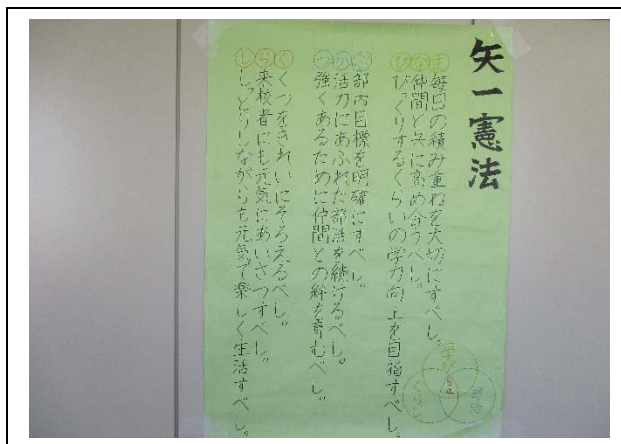 矢一憲法
ま 毎日の積み重ねを大切にすべし。
な 仲間と共に高め合うべし。
び びっくりするくらいの学力向上を目指すべし。
ぶ 部内目標を明確にすべし。
か 活力にあふれた部活を続けるべし。
つ 強くあるために仲間との絆を育むべし。
く くつをきれいにそろえるべし。
ら 来校者にも元気にあいさつすべし。
し しっとりしながらも元気で楽しく生活すべし。
学び
くらし
部活